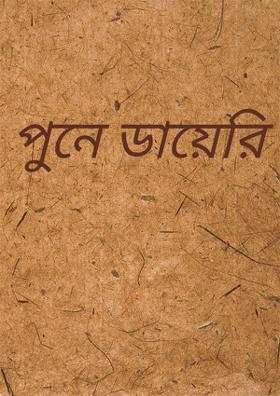 পুনে ডায়েরি